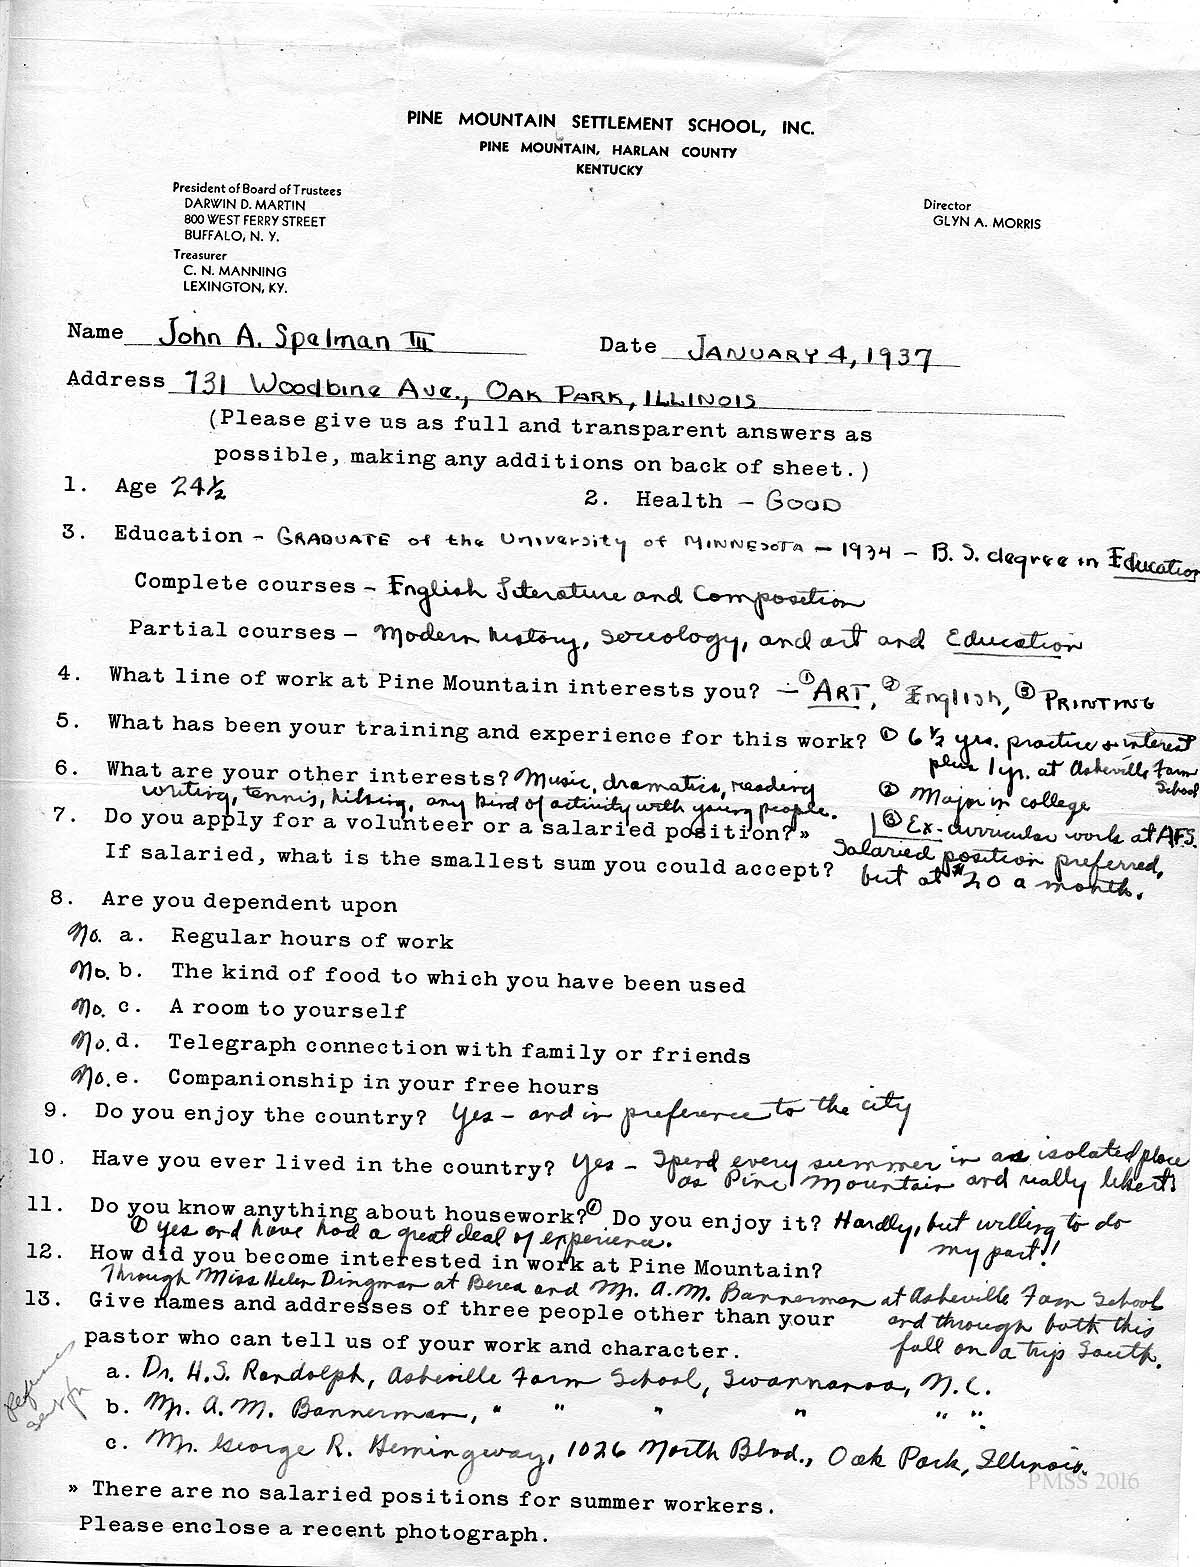 PINE MOUNTAIN SETTLEMENT SCHOOL, INC.
PINE MOUNTAIN, HARLAN COUNTY
KENTUCKY
President of Board of Trustees
DARWIN D. MARTIN
800 WEST FERRY STREET
BUFFALO, N. Y.
Treasurer
C. N. MANNING
LEXINGTON, KY.
Director
GLYN A. MORRIS
Name John A. Spelman III Date JANUARY 4, 1937
Address 731 Woodbine Ave., OAK PARK, ILLINOIS
(Please give us as full and transparent answers as
possible, making any additions on back of sheet.)
1. Age 24½ 2. Health - GOOD
3. Education - GRADUATE of the University of MINNESOTA - 1934 - B. S. degree in Education
Complete courses - English Literature and Composition
Partial courses - Modern history, sociology, and art and Education
4. What line of work at Pine Mountain interests you? - ① ART, ② English, ③ PRINTING
5. What has been your training and experience for this work? ① 6½ yrs. practice & interest
plus 1 yr. at Asheville Farm School
② Major in college
③ Ex-curricular work at A.F.S.
6. What are your other interests? Music, dramatics, reading
writing, tennis, hiking, any kind of activity with young people.
7. Do you apply for a volunteer or a salaried position?»
If salaried, what is the smallest sum you could accept? Salaried position preferred,
but at $20 a month.
8. Are you dependent upon
No. a. Regular hours of work
No. b. The kind of food to which you have been used
No. c. A room to yourself
No. d. Telegraph connection with family or friends
No. e. Companionship in your free hours
9. Do you enjoy the country? Yes - and in preference to the city
10. Have you ever lived in the country? Yes - Spend every summer in as isolated place
as Pine Mountain and really like it!
11. Do you know anything about housework?① Do you enjoy it? Hardly, but willing to do
my part!!
① Yes and have had a great deal of experience.
12. How did you become interested in work at Pine Mountain?
Through Miss Helen Dingman at Berea and Mr. A.M. Bannerman at Asheville Farm School
and through both this
fall on a trip South.
13. Give names and addresses of three people other than your
pastor who can tell us of your work and character.
a. Dr. H.S. Randolph, Asheville Farm School, Swannanoa, N.C.
b. Mr. A. M. Bannerman, " " " " " ".
c. Mr. George R. Hemingway, 1026 North Blvd., Oak Park, Illinois.
References
sent for
» There are no salaried positions for summer workers.
Please enclose a recent photograph.
PMSS 2016